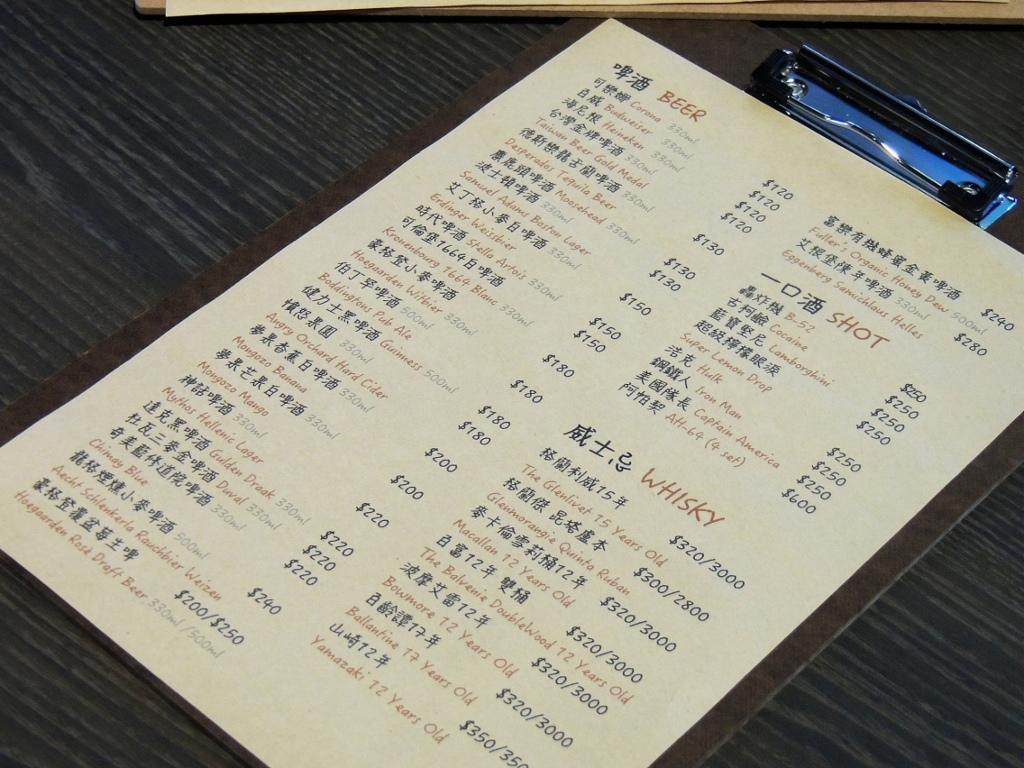 啤酒 BEER
可樂娜 Corona 330ml $120
百威 Budweiser 330ml $120
海尼根 Heineken 330ml $120
台灣金牌啤酒 330ml $120
Taiwan Beer Gold Medal
德斯樂龍舌蘭啤酒 330ml $130
Desperados Tequila Beer
麋鹿頭啤酒 Moosehead 330ml $130
波士頓啤酒 330ml $130
Samuel Adams Boston Lager
艾丁格小麥白啤酒 330ml $150
Erdinger Weissbier
時代啤酒 Stella Artois 330ml $150
可倫堡1664白啤酒 330ml $150
Kronenbourg 1664 Blanc
豪格登小麥啤酒 330ml $180
Hoegaarden Witbier
伯丁罕啤酒 500ml $180
Boddingtons Pub Ale
健力士黑啤酒 Guinness 500ml $180
憤怒果園 330ml $180
Angry Orchard Hard Cider
夢果香蕉白啤酒 330ml $200
Mongozo Banana
夢果芒果白啤酒 330ml $200
Mongozo Mango
神話啤酒 330ml $220
Mythos Hellenic Lager
達克黑啤酒 Gulden Draak 330ml $220
杜瓦三麥金啤酒 Duval 330ml $220
奇美藍修道院啤酒 330ml $220
Chimay Blue
龍格煙燻小麥啤酒 500ml $240
Aecht Schlenkerla Rauchbier Weizen
豪格登覆盆莓生啤 $200/$250
Hoegaarden Rosé Draft Beer 330ml/500ml
富樂有機蜂蜜金黃啤酒 $240
Fuller's Organic Honey Dew 500ml
艾根堡陳年啤酒 330ml $280
Eggenberg Samichlaus Helles
一口酒 SHOT
轟炸機 B-52 $250
古柯鹼 Cocaine $250
藍寶堅尼 Lamborghini $250
超級檸檬眼淚 $250
Super Lemon Drop
浩克 Hulk $250
鋼鐵人 Iron Man $250
美國隊長 Captain America $250
阿帕契 AH-64 (4 set) $600
威士忌 WHISKY
格蘭利威15年 $320/3000
The Glenlivet 15 Years Old
格蘭傑 昆塔盧本 $300/2800
Glenmorangie Quinta Ruban
麥卡倫雪莉桶12年 $320/3000
Macallan 12 Years Old
百富12年 雙桶 $320/3000
The Balvenie DoubleWood 12 Years Old
波摩艾雷12年 $320/3000
Bowmore 12 Years Old
百齡譚17年 $320/3000
Ballantine 17 Years Old
山崎12年 $350/350
Yamazaki 12 Years Old